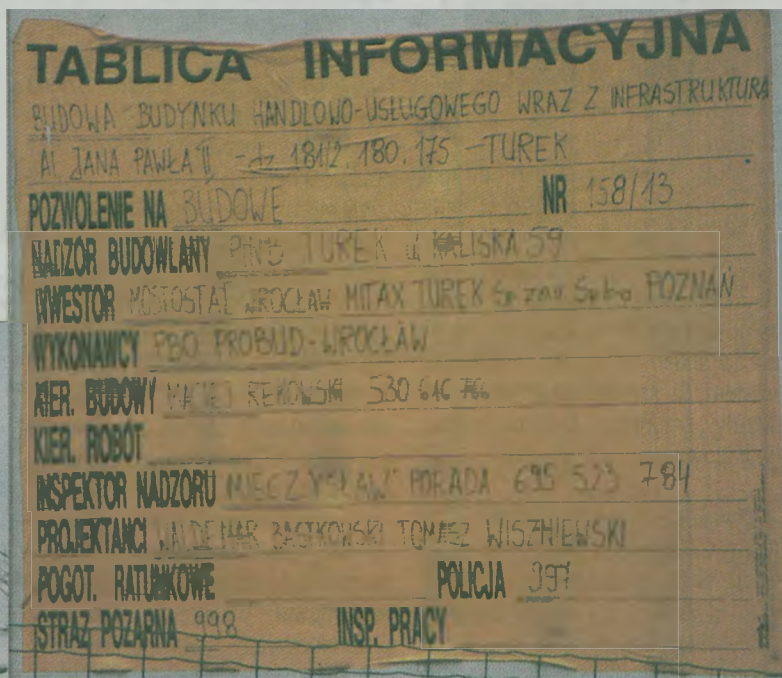 TABLICA INFORMACYJNA
BUDOWA BUDYNKU HANDLOWO-USŁUGOWEGO WRAZ Z INFRASTRUKTURA
Al JANA PAWŁA II - dz 181/2. 180. 175 - TUREK
POZWOLENIE NA BUDOWE NR 158/13
NADZÓR BUDOWLANY PINB TUREK ul KALISKA 59
INWESTOR MOSTOSTAL WROCŁAW MITAX TUREK Sp POZNAŃ
WYKONAWCY PBO PROBUD-WROCŁAW
KIER. BUDOWY MACIEJ REKOWSKI 530 616
KIER. ROBÓT
INSPEKTOR NADZORU MIECZYSŁAW PORADA 695 523 784
PROJEKTANCI WALDEMAR TOMASZ WISZNIEWSKI
POGOT. RATUNKOWE POLICJA 997
STRAŻ POŻARNA 998 INSP. PRACY